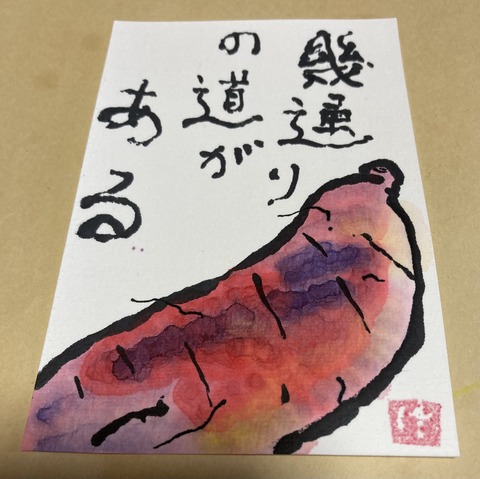 幾通り
の道が
ある